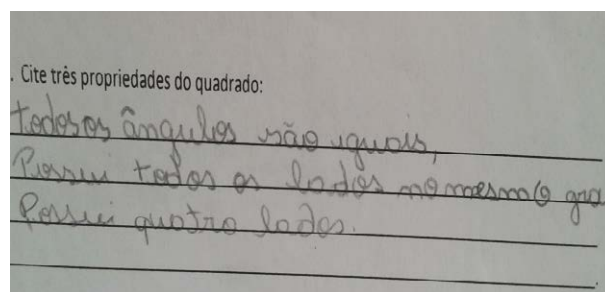 . Cite três propriedades do quadrado:
todos os ângulos são iguais,
Possui todos os lados no mesmo gra
Possui quatro lados.